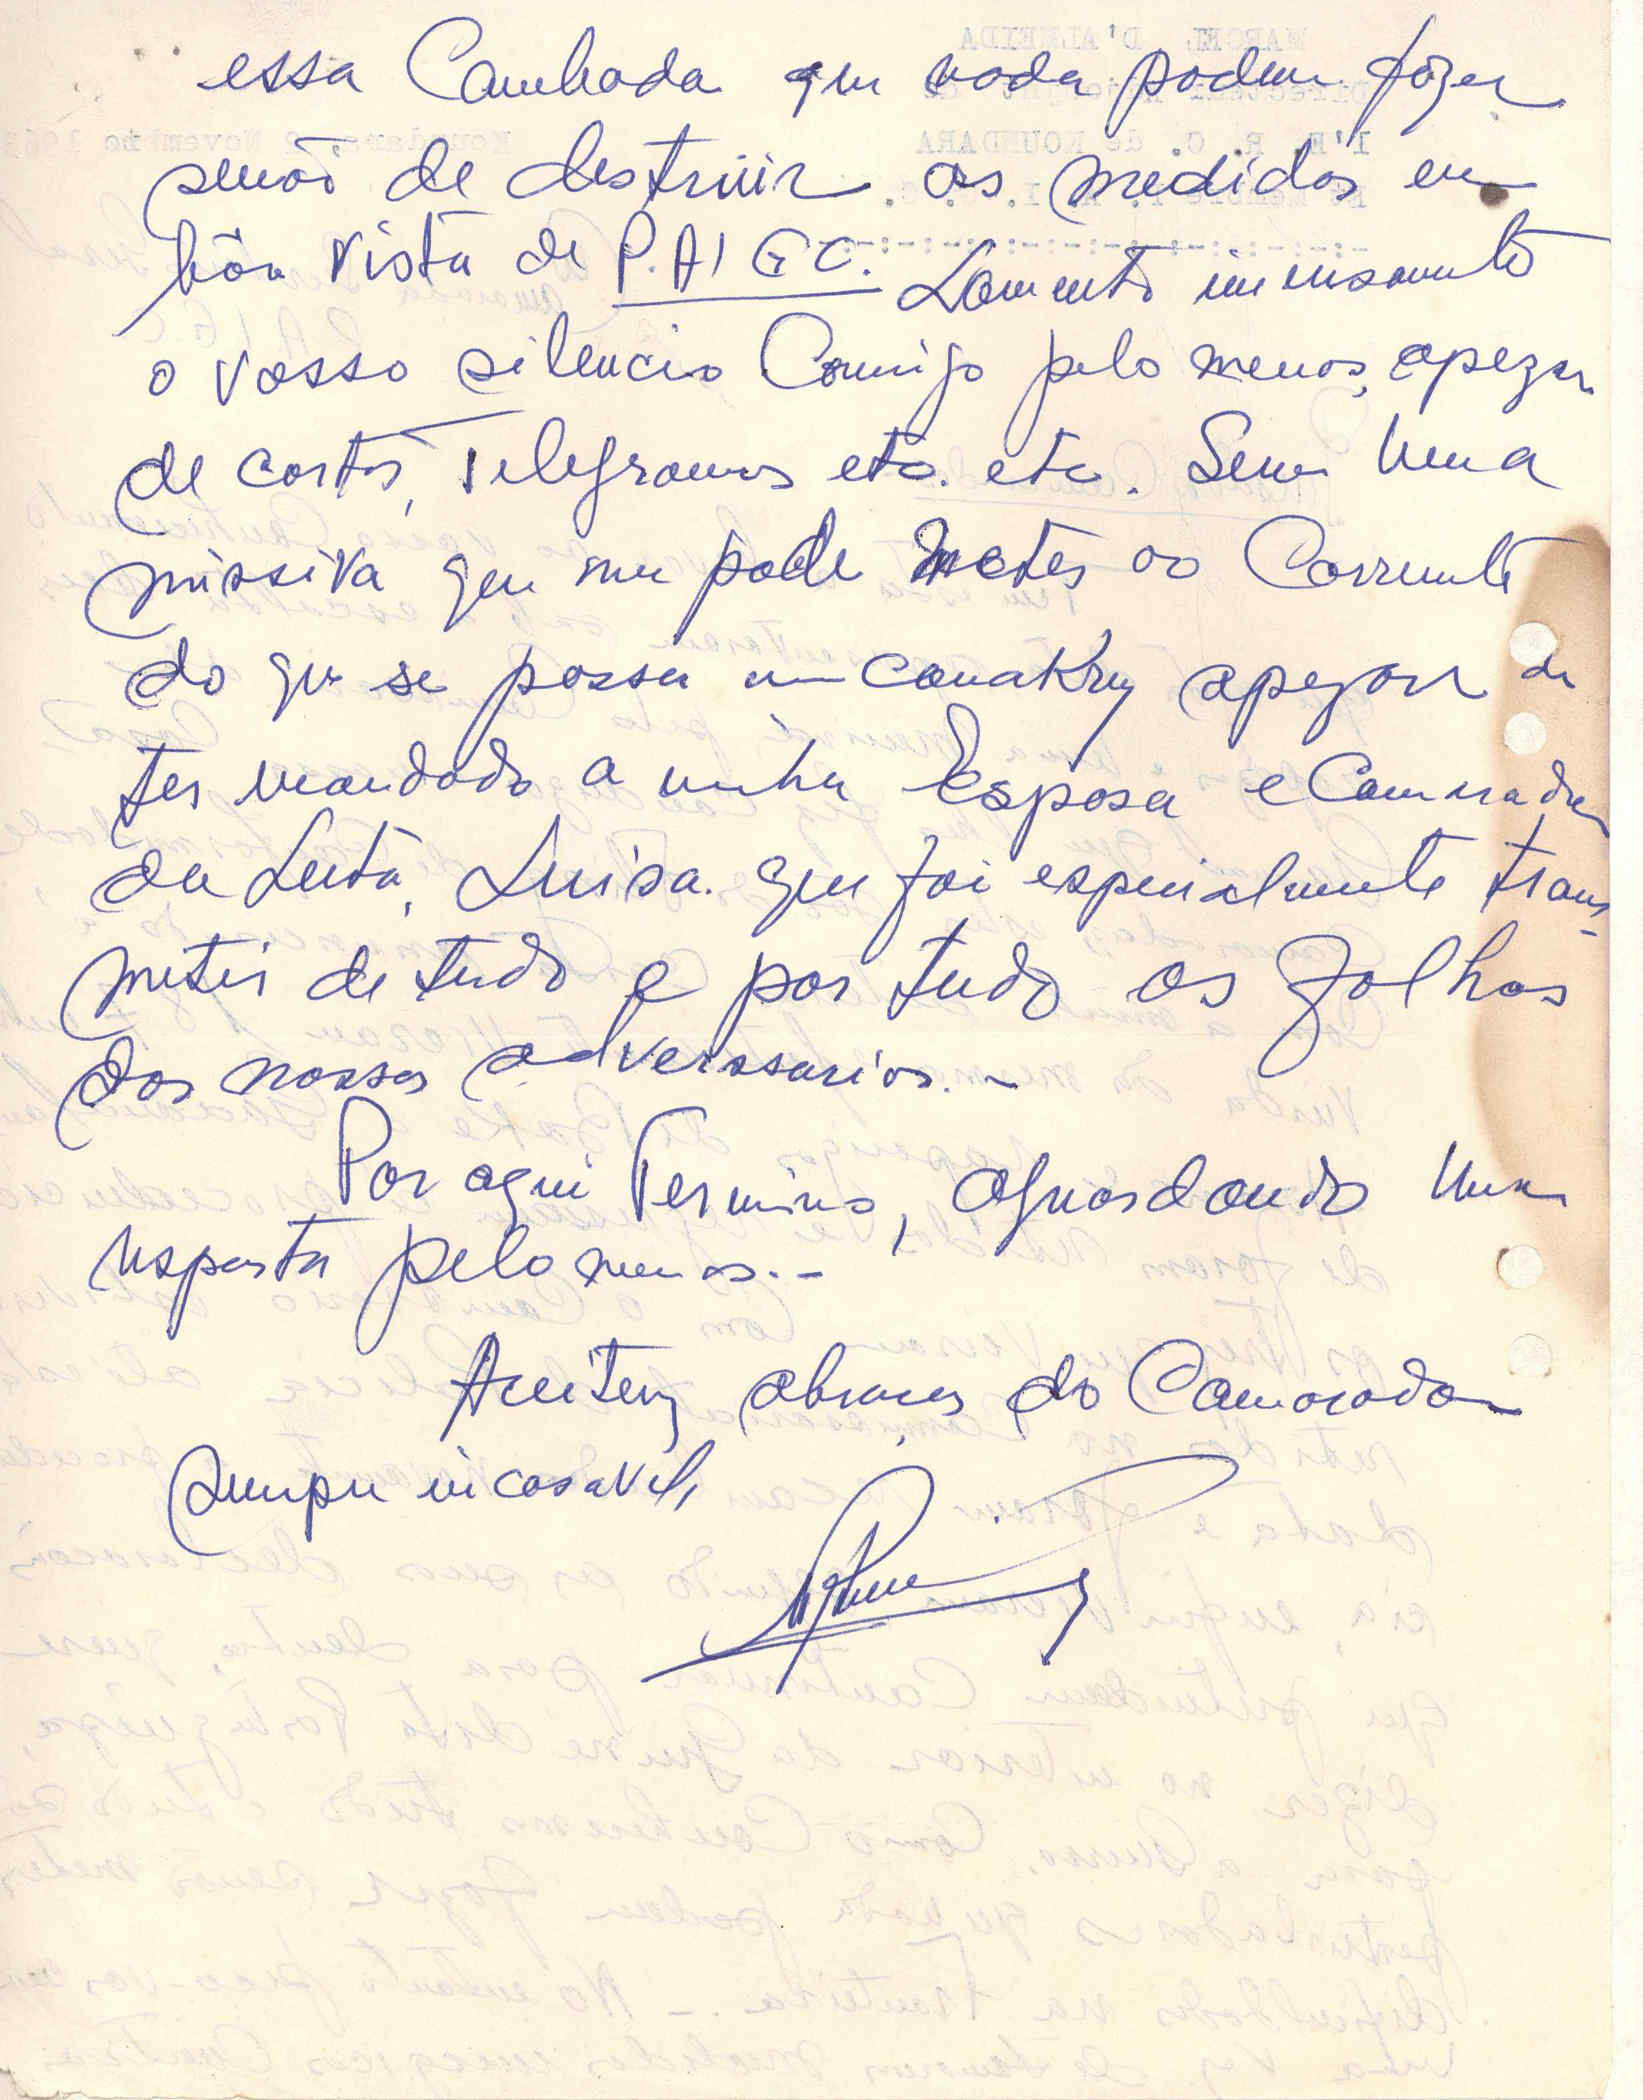 essa Cambada que nada podem fazer
senão de destruir as medidas em
bôa vista de P.A I G C. Lamento imensamente
o vosso silencio Comigo pelo menos, apezar
de cartas, Telegramas etc. etc. Sem Uma
missiva que me pode meter ao Corrente
do que se passa em Conakry apezar de
ter mandado a minha Esposa e Camarada
da Luta, Luisa. que foi especialmente trans-
meter de tudo e por tudo os folhas
dos nossos adverssarios. -
Por aqui Termino, aguardando Uma
resposta pelo menos. -
Aceitem abraços do Camarada
sempre incasavel,